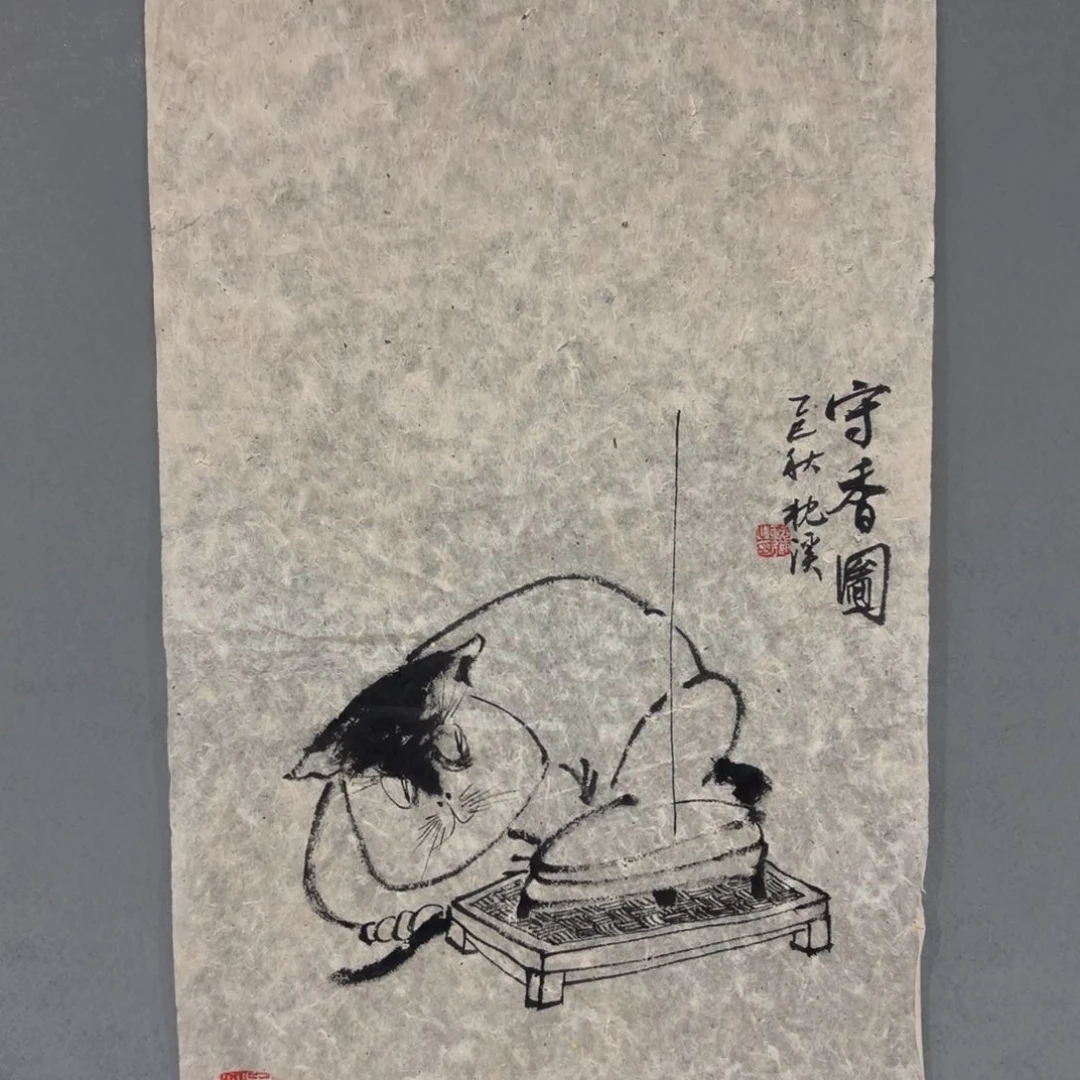 守香圖
乙巳秋 枕溪